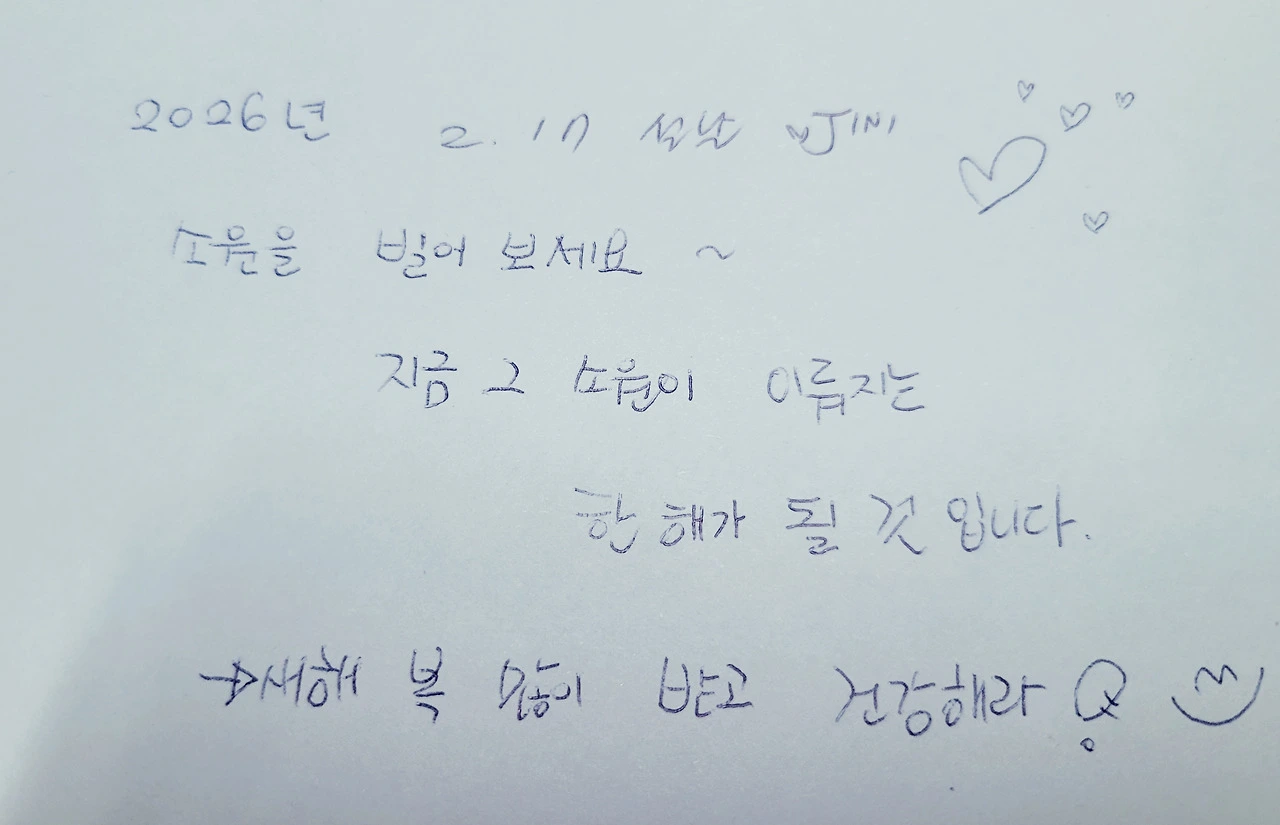 2026년 2. 17 설날 JINI
소원을 빌어 보세요 ~
지금 그 소원이 이뤄지는
한 해가 될 것 입니다.
→ 새해 복 많이 받고 건강해라